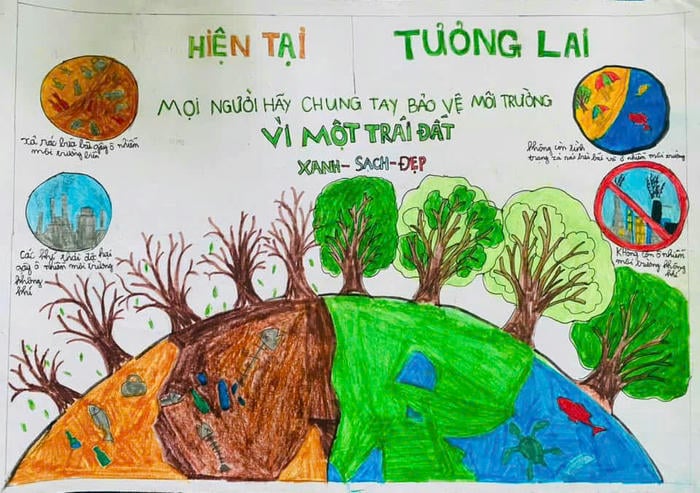 HIỆN TẠI
TƯỎNG LAI
MỌI NGƯỜI HÃY CHUNG TAY BẢO VỆ MÔI TRƯỜNG
VÌ MỘT TRÁI ĐẤT
XANH-SẠCH-ĐẸP
Xả rác bừa bãi gây ô nhiễm
môi trường biển
Không còn tình
trạng xả rác bừa bãi và ô nhiễm môi trường
Các khí thải độc hại
gây ô nhiễm môi trường
không
khí
Không còn ô nhiễm
môi trường không
khí